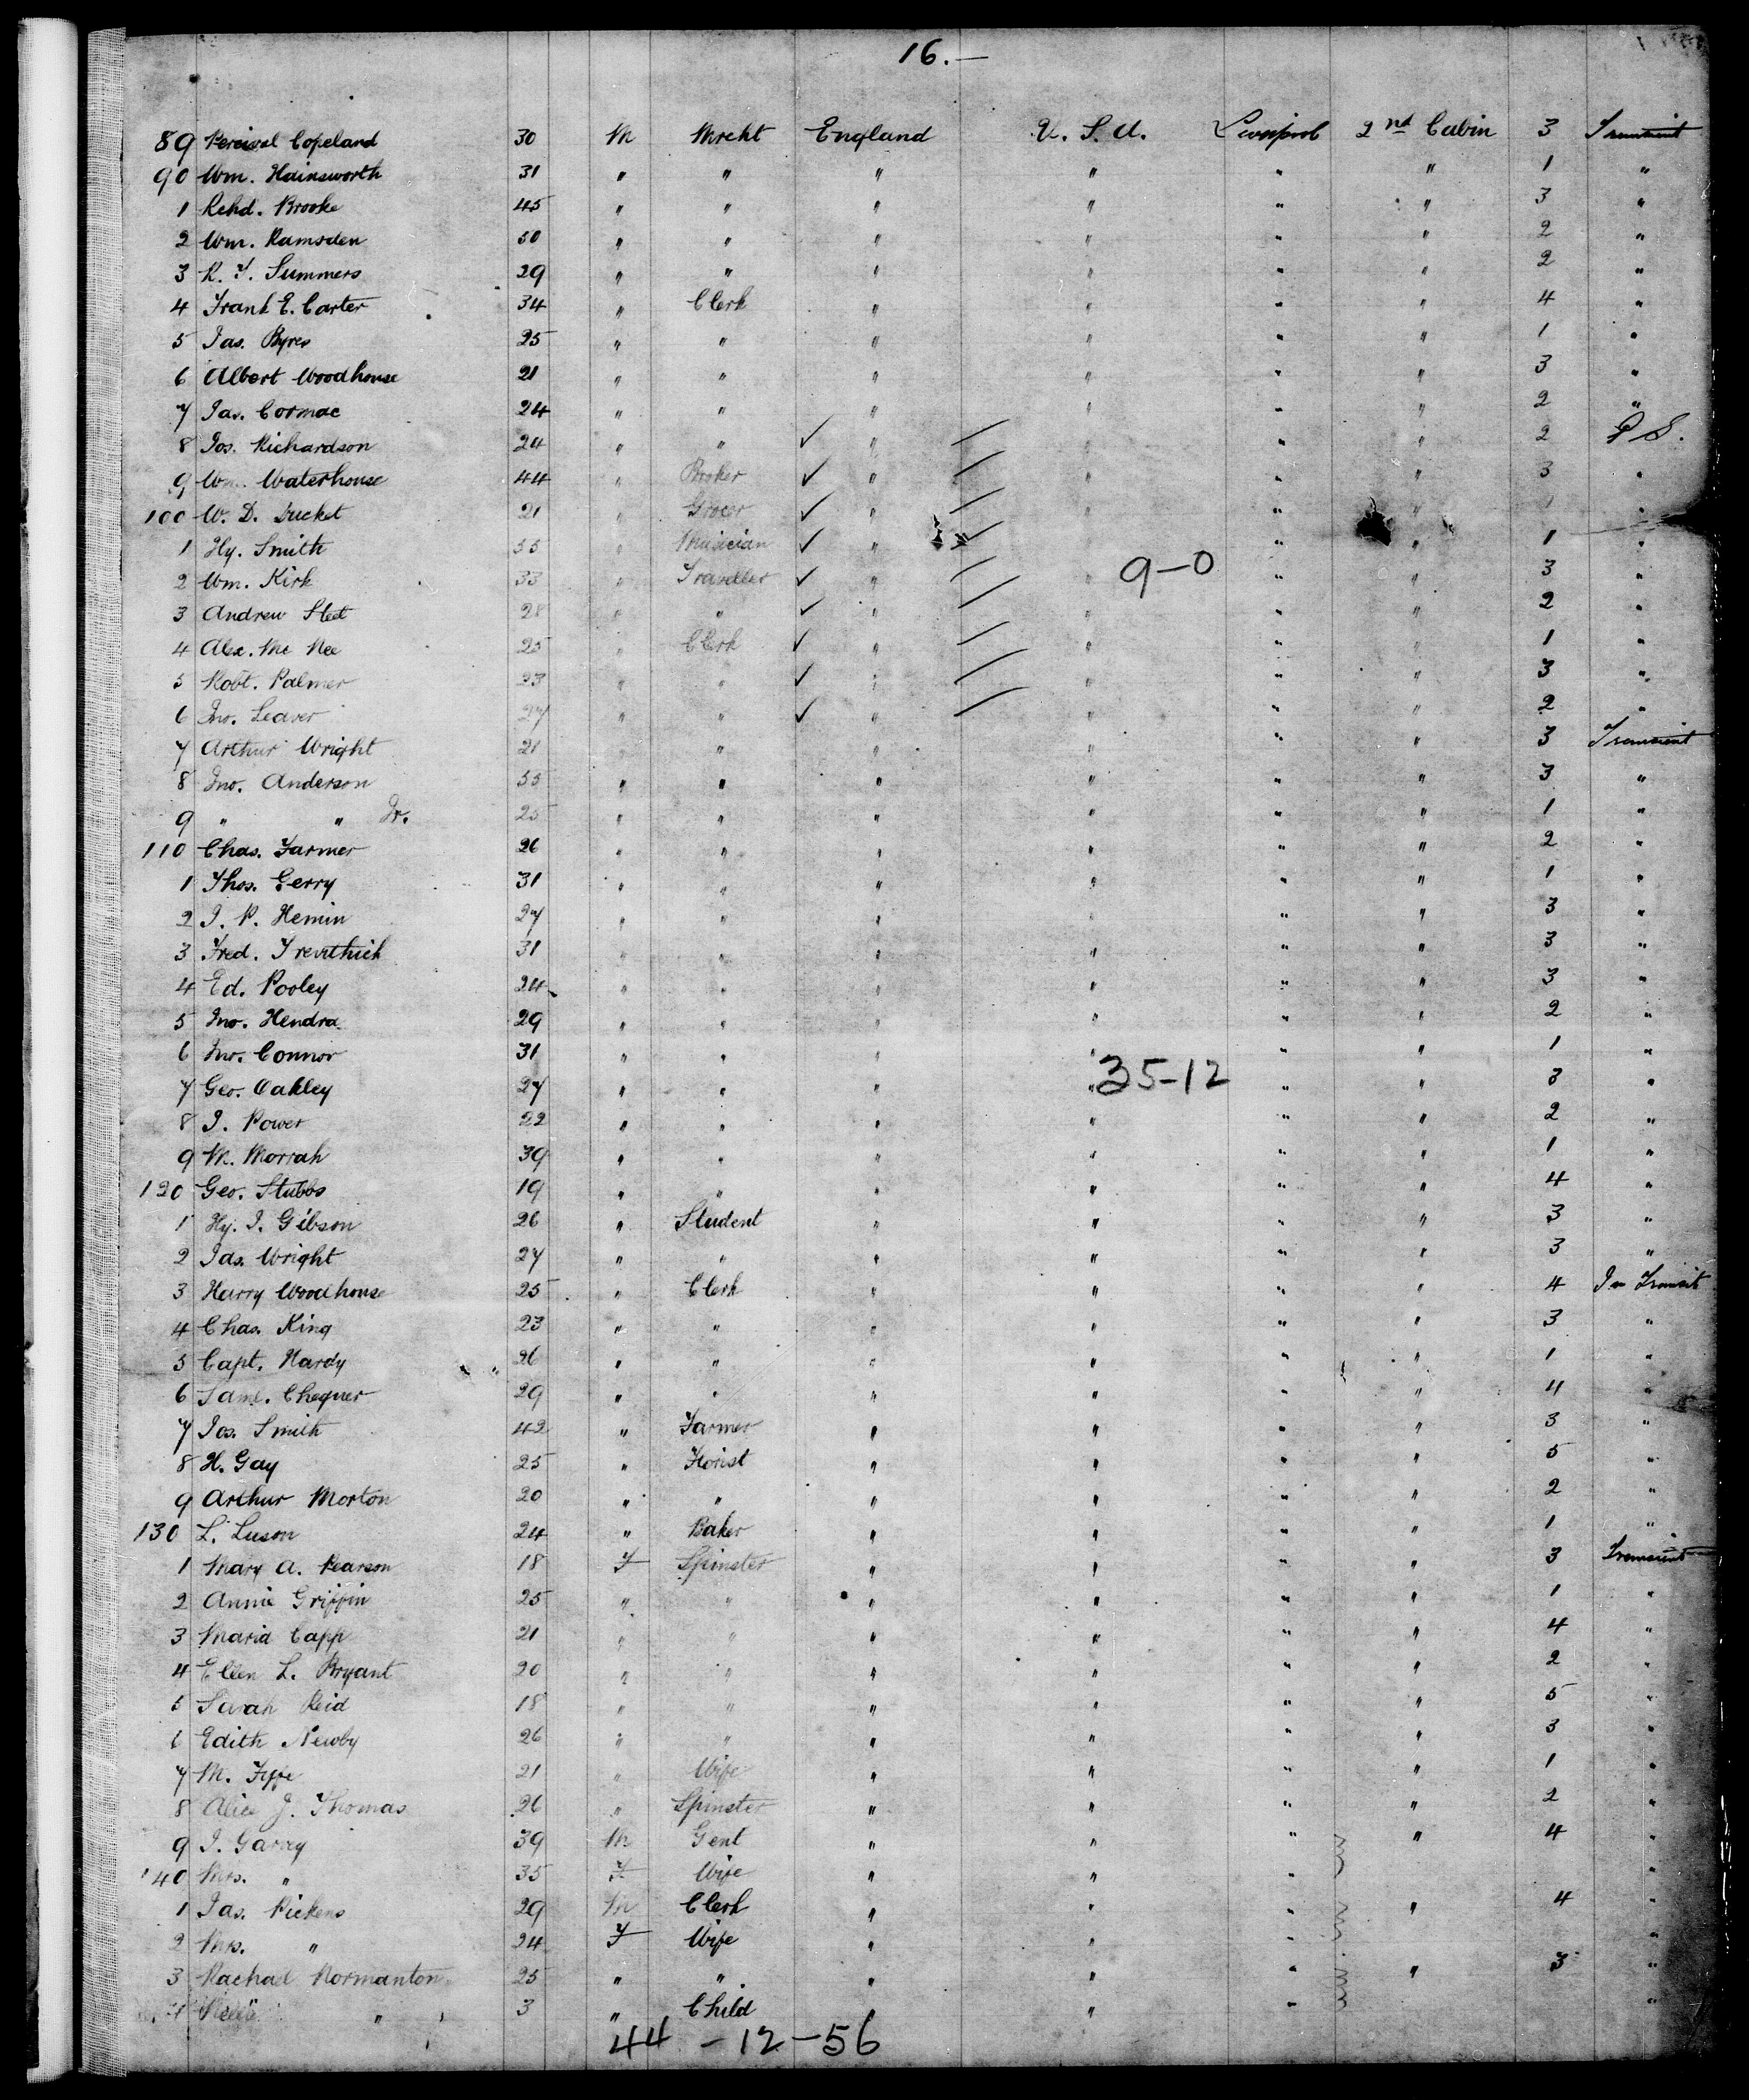 16.—
89 Percival Copeland 30 M Mrcht England U. S. A. Liverpool 2nd Cabin 3 Transient
90 Wm. Hainsworth 31 " " " " " " 1 "
1 Rchd. Brooke 45 " " " " " " 3 "
2 Wm. Ramsden 50 " " " " " " 2 "
3 R. T. Summers 29 " " " " " " 2 "
4 Frank E. Carter 34 " Clerk " " " " 4 "
5 Jas. Byres 25 " " " " " " 1 "
6 Albert Woodhouse 21 " " " " " " 3 "
7 Jas. Cormac 24 " " " " " " 2 "
8 Jos. Richardson 24 " " ✓ " / " " " 2 P S.
9 Wm. Waterhouse 44 " Broker ✓ " / " " " 3 "
100 W. D. Ducket 21 " Grocer ✓ " / " " " 1 "
1 Hy. Smith 35 " Musician ✓ " ✓ " " 1 "
2 Wm. Kirk 33 " Traveller ✓ " / " 9-0 " " 3 "
3 Andrew Steet 28 " " ✓ " / " " " 2 "
4 Alex. Mc Nee 25 " Clerk ✓ " / " " " 1 "
5 Robt. Palmer 23 " " ✓ " / " " " 3 "
6 Jno. Leaver 27 " " ✓ " / " " " 2 "
7 Arthur Wright 21 " " " " " 3 Transient
8 Jno. Anderson 55 " " " " " " 3 "
9 " " Jr. 25 " " " " " " 1 "
110 Chas. Farmer 26 " " " " " " 2 "
1 Thos. Gerry 31 " " " " " " 1 "
2 J. P. Hemin 27 " " " " " " 3 "
3 Fred. Trevithick 31 " " " " " " 3 "
4 Ed. Pooley 24 " " " " " " 3 "
5 Jno. Hendra 29 " " " " " " 2 "
6 Jno. Connor 31 " " " " " " 1 "
7 Geo. Oakley 27 " " " " 35-12 " " 3 "
8 J. Power 22 " " " " " " 2 "
9 M. Morrah 39 " " " " " " 1 "
120 Geo. Stubbs 19 " " " " " " 4 "
1 Hy. J. Gibson 26 " Student " " " " 3 "
2 Jas. Wright 27 " " " " " " 3 "
3 Harry Woodhouse 25 " Clerk " " " " 4 In Transit
4 Chas. King 23 " " " " " " 3 "
5 Capt. Hardy 26 " " " " " " 1 "
6 Saml. Chequer 29 " " " " " " 4 "
7 Jos. Smith 42 " Farmer " " " " 3 "
8 H. Gay 25 " Florist " " " " 5 "
9 Arthur Morton 20 " " " " " " 2 "
130 L. Luson 24 " Baker " " " " 1 "
1 Mary A. Pearson 18 F Spinster " " " " 3 Transient
2 Annie Griffin 25 " " " " " " 1 "
3 Maria Capp 21 " " " " " " 4 "
4 Ellen L. Bryant 20 " " " " " " 2 "
5 Sarah Reid 18 " " " " " " 5 "
6 Edith Newby 26 " " " " " " 3 "
7 M. Fyfe 21 " Wife " " " " 1 "
8 Alice J. Thomas 26 " Spinster " " " " 2 "
9 J. Garvey 39 M Gent " " " " 4 "
140 Mrs. " 35 F Wife " " " "
1 Jas. Pickens 29 M Clerk " " " " 4 "
2 Mrs. " 24 F Wife " " " "
3 Rachael Normanton 25 " " " " " " 3 "
4 " 3 " Child " " " "
44 - 12 - 56